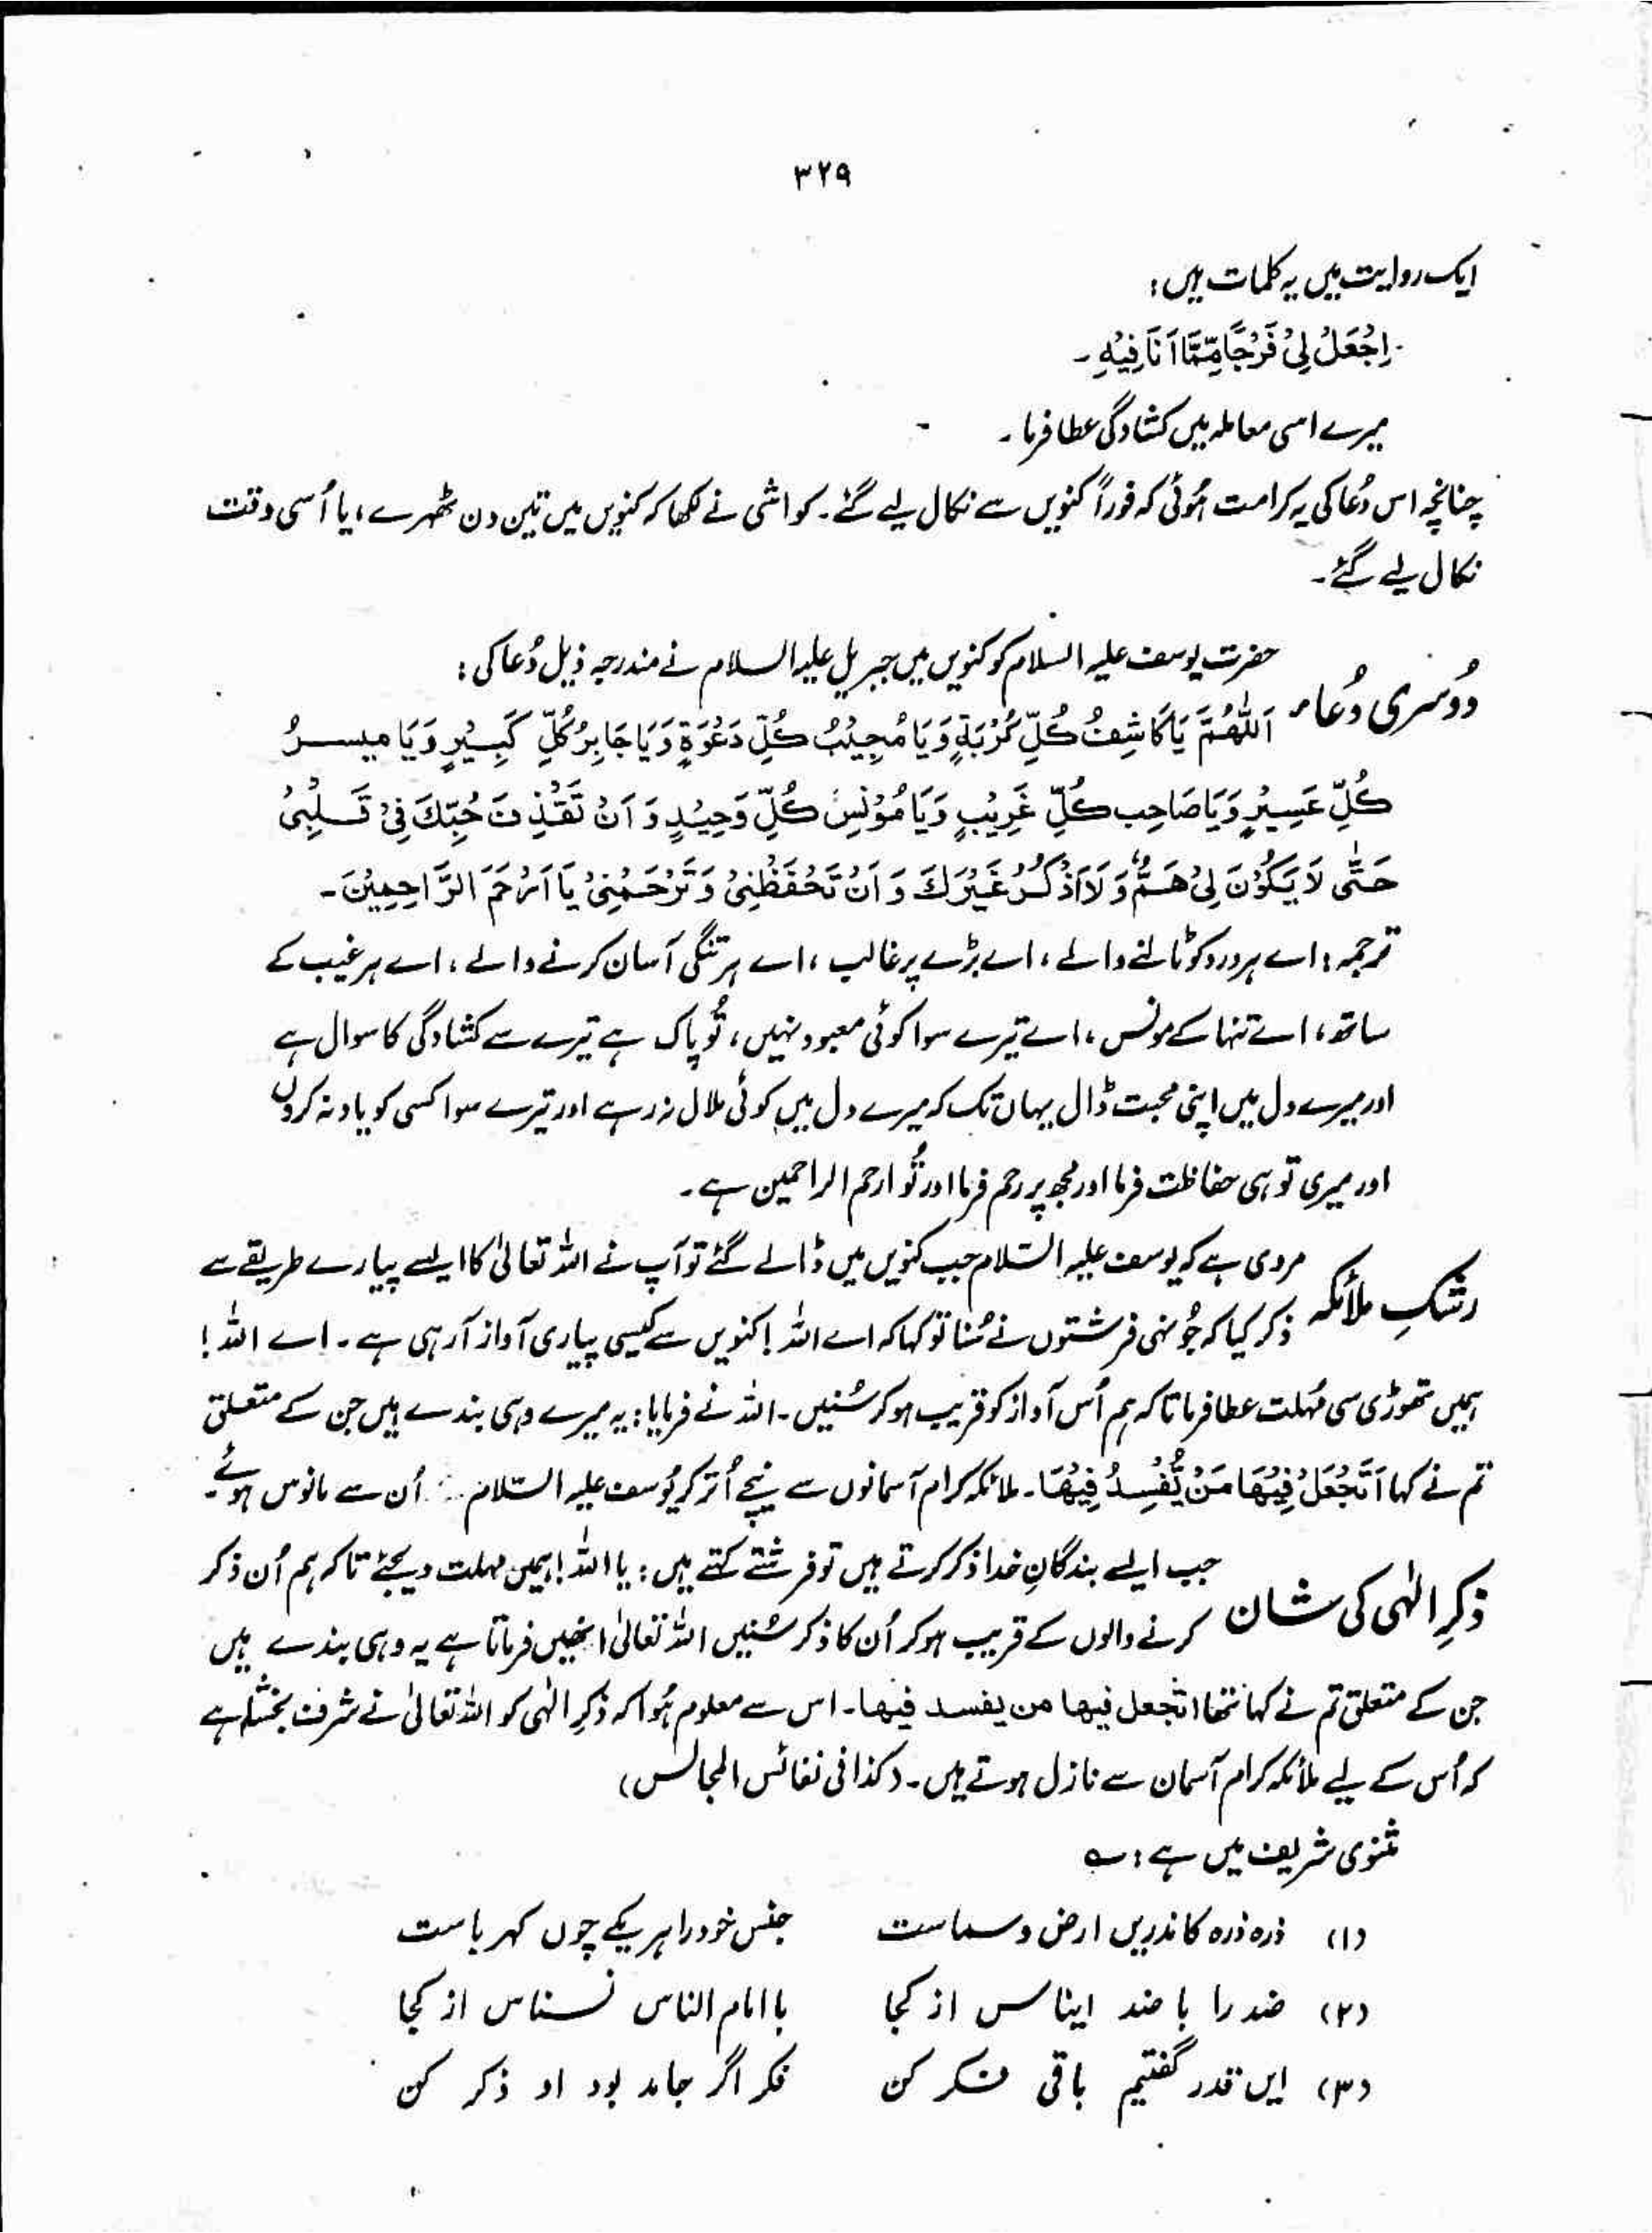 ۳۲۹
ایک روایت میں یہ کلمات ہیں:
اِجْعَلْ لِیْ فَرْجًا مِّمَّا اَنَا فِیْهِ۔
میرے اسی معاملہ میں کشادگی عطا فرما۔
چنانچہ اس دُعا کی یہ کرامت ہُوئی کہ فوراً کنویں سے نکال لیے گئے۔ کواشی نے لکھا کہ کنویں میں تین دن ٹھہرے، یا اُسی وقت
نکال لیے گئے۔
حضرت یوسف علیہ السلام کو کنویں میں جبریل علیہ السلام نے مندرجہ ذیل دُعا کی:
دُوسری دُعا
اَللّٰهُمَّ یَا کَاشِفُ کُلِّ کُرْبَةٍ وَیَا مُجِیْبُ کُلِّ دَعْوَةٍ وَیَا جَابِرُ کُلِّ کَبِیْرٍ وَیَا میسرُ
کُلِّ عَسِیْرٍ وَیَا صَاحِب کُلِّ غَرِیْبٍ وَیَا مُوْنِسُ کُلِّ وَحِیْدٍ وَ اَنْ تَقْذِنَ حُبِّكَ فِیْ قَلْبِیْ
حَتّٰی لَا یَکُوْنَ لِیْ هَمٌّ وَ لَا اَذْکُرُ غَیْرَكَ وَ اَنْ تَحْفَظْنِیْ وَ تَرْحَمْنِیْ یَا اَرْحَمَ الرَّاحِمِیْنَ۔
ترجمہ: اے ہر درد کو ٹالنے والے، اے بڑے پر غالب، اے ہر تنگی آسان کرنے والے، اے ہر غیب کے
ساتھ، اے تنہا کے مونس، اے تیرے سوا کوئی معبود نہیں، تُو پاک ہے تیرے سے کشادگی کا سوال ہے
اور میرے دل میں اپنی محبت ڈال یہاں تک کہ میرے دل میں کوئی ملال نہ رہے اور تیرے سوا کسی کو یاد نہ کروں
اور میری تو ہی حفاظت فرما اور مجھ پر رحم فرما اور تُو ارحم الراحمین ہے۔
رشکِ ملائکہ
مروی ہے کہ یوسف علیہ السّلام جب کنویں میں ڈالے گئے تو آپ نے اللہ تعالیٰ کا ایسے پیارے طریقے سے
ذکر کیا کہ جُونہی فرشتوں نے سُنا تو کہا کہ اے اللہ! کنویں سے کیسی پیاری آواز آرہی ہے۔ اے اللہ!
ہمیں تھوڑی سی مُہلت عطا فرما تا کہ ہم اُس آواز کو قریب ہو کر سُنیں۔ اللہ نے فرمایا: یہ میرے وہی بندے ہیں جن کے متعلق
تم نے کہا اَتَجْعَلُ فِیْهَا مَنْ یُّفْسِدُ فِیْهَا۔ ملائکہ کرام آسمانوں سے نیچے اُتر کر یُوسف علیہ السّلام اُن سے مانوس ہوئے۔
ذکرِ الٰہی کی شان
جب ایسے بندگانِ خدا ذکر کرتے ہیں تو فرشتے کہتے ہیں: یا اللہ! ہمیں مہلت دیجئے تاکہ ہم اُن ذکر
کرنے والوں کے قریب ہو کر اُن کا ذکر سُنیں اللہ تعالیٰ انھیں فرماتا ہے یہ وہی بندے ہیں
جن کے متعلق تم نے کہا تھا اتجعل فیھا من یفسد فیھا۔ اس سے معلوم ہُوا کہ ذکرِ الٰہی کو اللہ تعالیٰ نے شرف بخشا ہے
کہ اُس کے لیے ملائکہ کرام آسمان سے نازل ہوتے ہیں۔ (کذا فی نفائس المجالس)
مثنوی شریف میں ہے: ؎
(۱) ذرہ ذرہ کاندریں ارض و سماست جنس خود را ہر یکے چوں کہرباست
(۲) ضد را با ضد ایناس از کجا با امام الناس نسناس از کجا
(۳) ایں قدر گفتیم باقی فکر کن فکر اگر جامد بود او ذکر کن